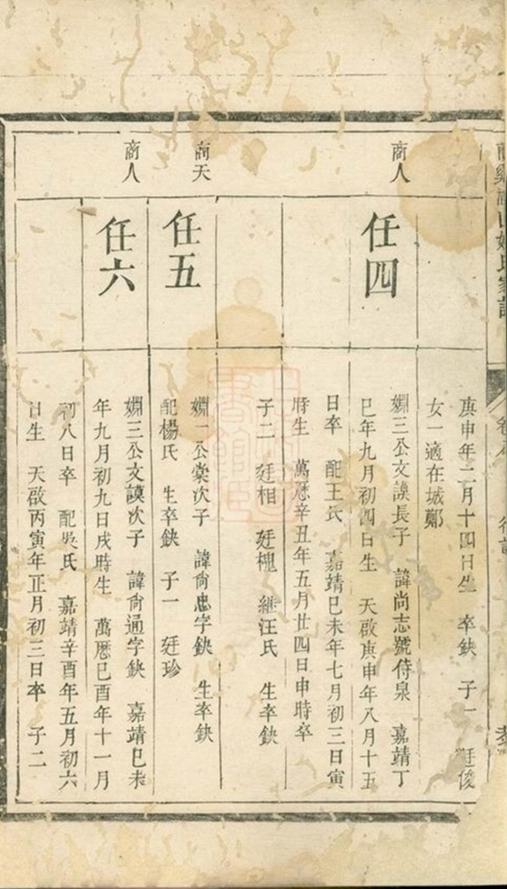 庚申年二月十四日生 卒鈌 子一 廷俊
女一適在城鄭
商人
任四
嫻三公文謨長子 諱尚志號侍泉 嘉靖丁
巳年九月初四日生 天啟庚申年八月十五
日卒 配王氏 嘉靖巳未年七月初三日寅
時生 萬厯辛丑年五月廿四日申時卒
子二 廷相 廷槐 繼汪氏 生卒鈌
商天
任五
嫻一公棠次子 諱尙忠字鈌 生卒鈌
配楊氏 生卒鈌 子一 廷珍
商人
任六
嫻三公文謨次子 諱尙通字鈌 嘉靖巳未
年九月初九日戌時生 萬厯巳酉年十一月
初八日卒 配吳氏 嘉靖辛酉年五月初六
日生 天啟丙寅年正月初三日卒 子二